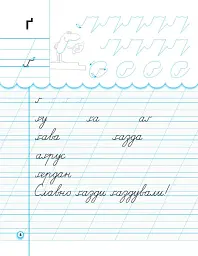 ґ
ґ
ґу ґа аґ
ґава ґазда
аґрус
ґердан
Славно ґазди ґаздували!